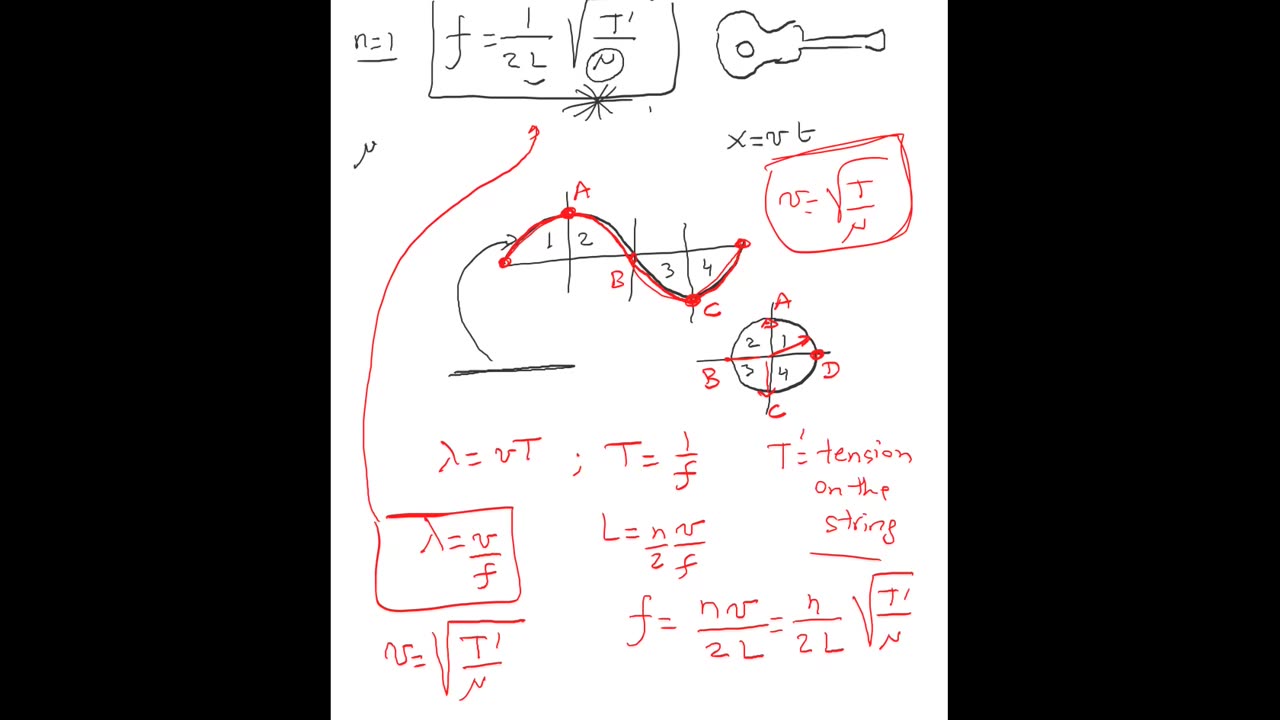 n=1 f = 1/2L √(T'/μ)
μ
x=vt
v=√(T/μ)
A
1 2
B 3 4
C
A
2 1
B 3 4 D
C
λ=vT ; T= 1/f T'= tension
on the
string
λ= v/f L= n/2 v/f
f= nv/2L = n/2L √(T'/μ)
v=√(T'/μ)